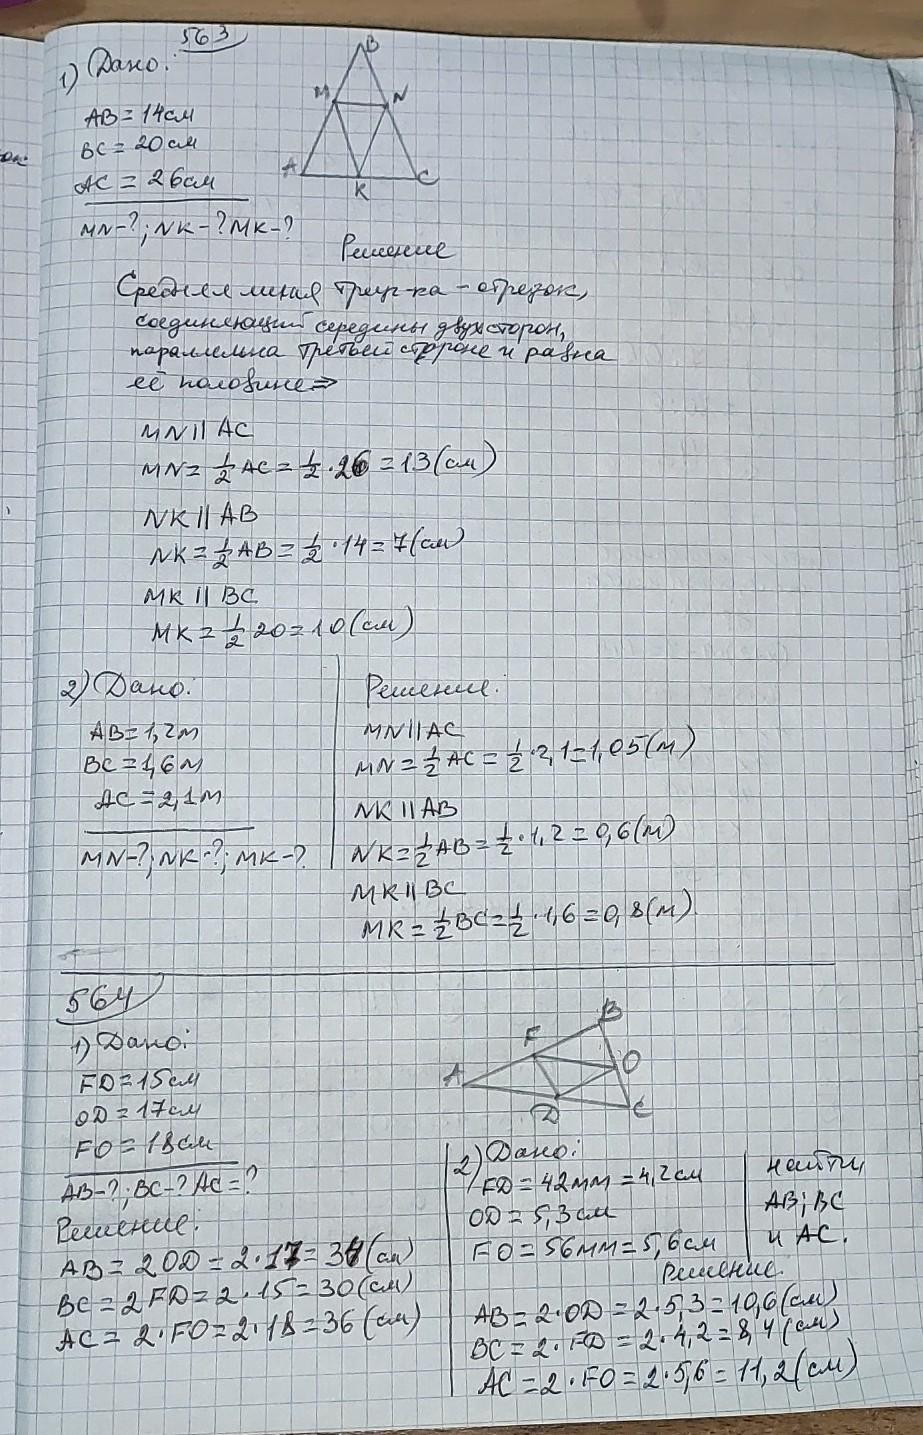 563
1) Дано:
AB = 14см
BC = 20см
AC = 26см
MN-?; NK-? MK-?
B
M N
A K C
Решение
Средняя линия треуг-ка - отрезок,
соединяющий середины двух сторон,
параллельна третьей стороне и равна
её половине ⇒
MN || AC
MN = 1/2 AC = 1/2 · 26 = 13 (см)
NK || AB
NK = 1/2 AB = 1/2 · 14 = 7 (см)
MK || BC
MK = 1/2 20 = 10 (см)
2) Дано:
AB = 1,2м
BC = 1,6м
AC = 2,1м
MN-?; NK-?; MK-?
Решение:
MN || AC
MN = 1/2 AC = 1/2 · 2,1 = 1,05 (м)
NK || AB
NK = 1/2 AB = 1/2 · 1,2 = 0,6 (м)
MK || BC
MK = 1/2 BC = 1/2 · 1,6 = 0,8 (м)
564
1) Дано:
FD = 15см
OD = 17см
FO = 18см
AB-?; BC-? AC=?
B
F
A O
D C
Решение:
AB = 2OD = 2 · 17 = 34 (см)
BC = 2FD = 2 · 15 = 30 (см)
AC = 2 · FO = 2 · 18 = 36 (см)
2) Дано:
FD = 42мм = 4,2см
OD = 5,3см
FO = 56мм = 5,6см
найти
AB; BC
и AC.
Решение.
AB = 2 · OD = 2 · 5,3 = 10,6 (см)
BC = 2 · FD = 2 · 4,2 = 8,4 (см)
AC = 2 · FO = 2 · 5,6 = 11,2 (см)